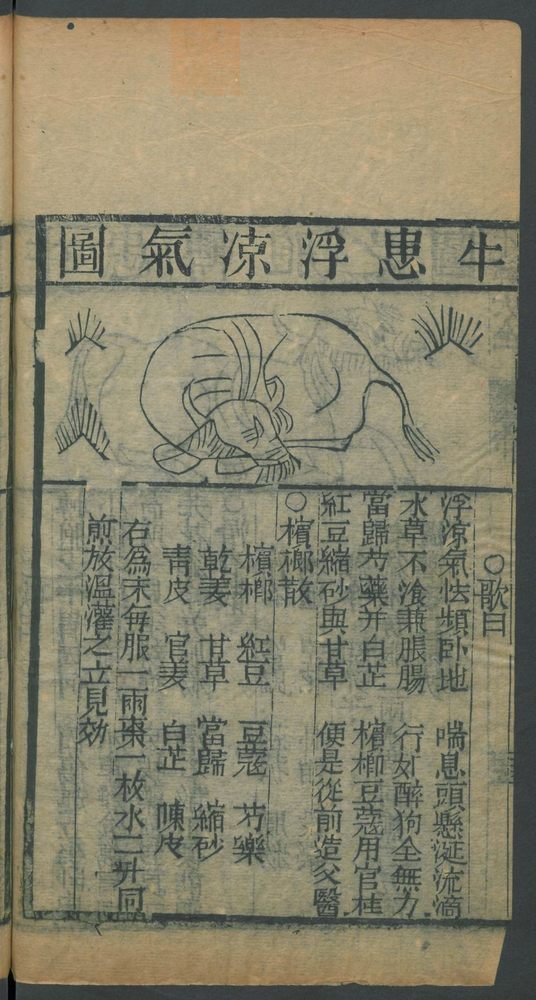 牛患浮凉氣圖
○歌曰
浮凉氣怯頻卧地 喘息頭懸涎流滴
水草不飡兼脹腸 行如醉狗全無力
當歸芍藥并白芷 檳榔豆蔻用官桂
紅豆縮砂與甘草 便是從前造父醫
○檳榔散
檳榔 紅豆 豆蔻 芍樂
乾姜 甘草 當歸 縮砂
青皮 官姜 白芷 陳皮
右為末每服一兩棗一枚水二升同
煎放溫灌之立見効